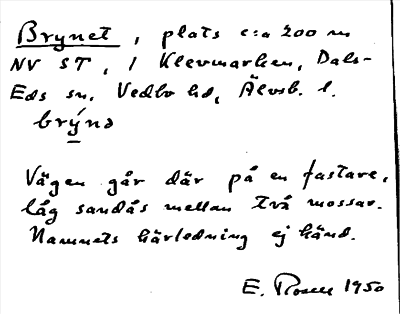 Brynet, plats c:a 200 m
NV ST, i Klevmarken, Dals-
Eds sn, Vedbo hd, Älvsb. l.
brýnə
Vägen går där på en fastare,
låg sandås mellan två mossar.
Namnets härledning ej känd.
E. Rosell 1950